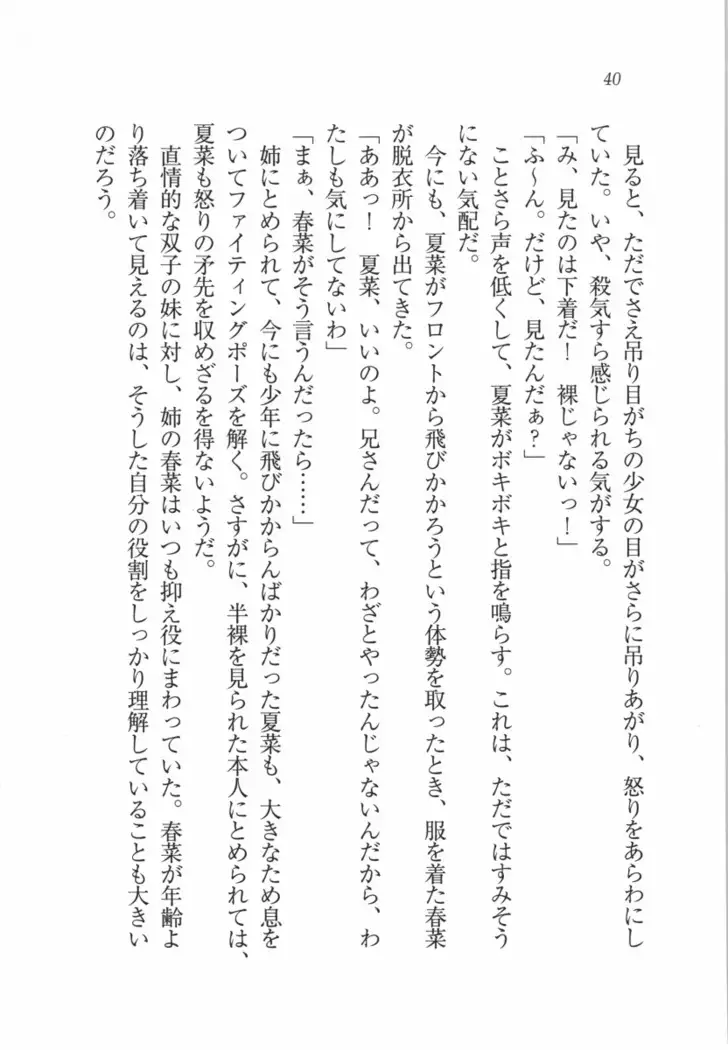 40
見ると、ただでさえ吊り目がちの少女の目がさらに吊りあがり、怒りをあらわにし
ていた。いや、殺気すら感じられる気がする。
「み、見たのは下着だ！　裸じゃないっ！」
「ふ〜ん。だけど、見たんだぁ？」
ことさら声を低くして、夏菜がボキボキと指を鳴らす。これは、ただではすみそう
にない気配だ。
今にも、夏菜がフロントから飛びかかろうという体勢を取ったとき、服を着た春菜
が脱衣所から出てきた。
「ああっ！　夏菜、いいのよ。兄さんだって、わざとやったんじゃないんだから、わ
たしも気にしてないわ」
「まぁ、春菜がそう言うんだったら……」
姉にとめられて、今にも少年に飛びかからんばかりだった夏菜も、大きなため息を
ついてファイティングポーズを解く。さすがに、半裸を見られた本人にとめられては、
夏菜も怒りの矛先を収めざるを得ないようだ。
直情的な双子の妹に対し、姉の春菜はいつも抑え役にまわっていた。春菜が年齢よ
り落ち着いて見えるのは、そうした自分の役割をしっかり理解していることも大きい
のだろう。